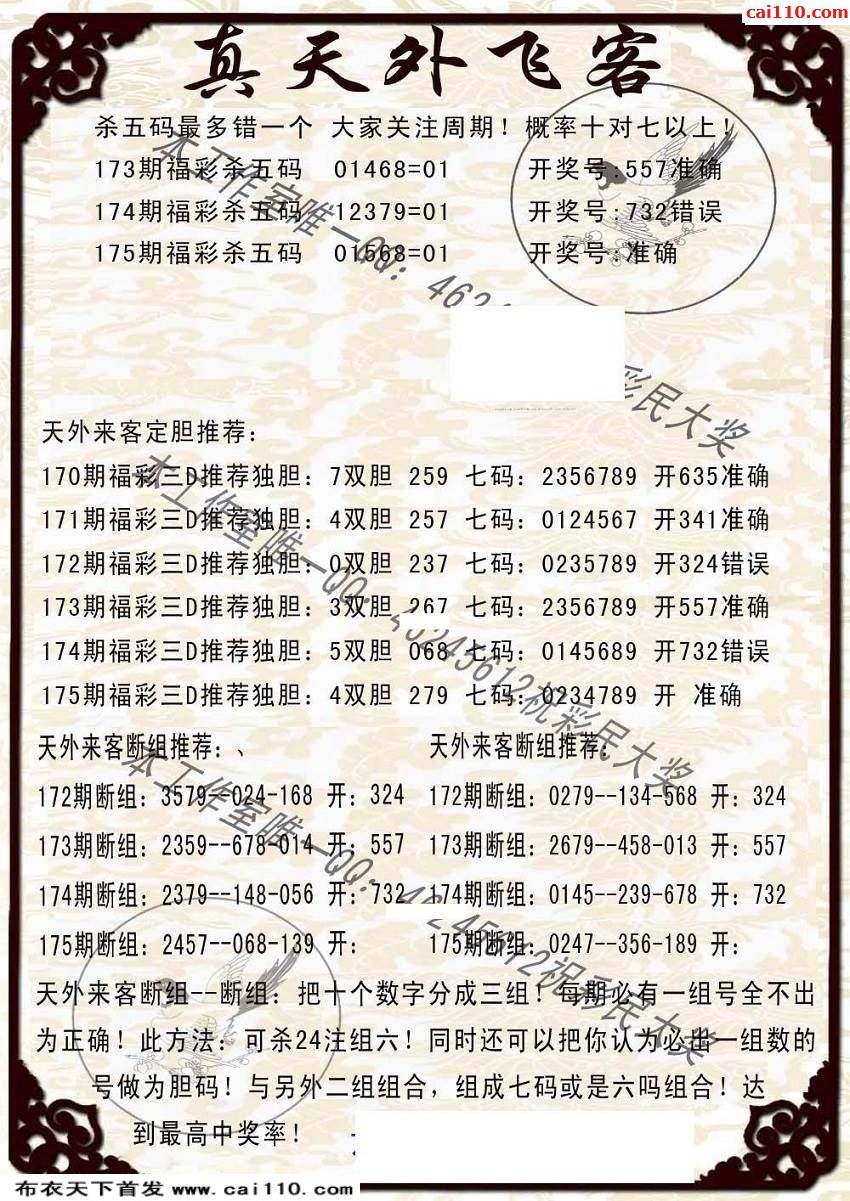 cai110.com
真天外飞客
杀五码最多错一个 大家关注周期！概率十对七以上！
173期福彩杀五码 01468=01 开奖号:557准确
174期福彩杀五码 12379=01 开奖号:732错误
175期福彩杀五码 01568=01 开奖号:准确
天外来客定胆推荐：
170期福彩三D推荐独胆：7双胆 259 七码：2356789 开635准确
171期福彩三D推荐独胆：4双胆 257 七码：0124567 开341准确
172期福彩三D推荐独胆：0双胆 237 七码：0235789 开324错误
173期福彩三D推荐独胆：3双胆 267 七码：2356789 开557准确
174期福彩三D推荐独胆：5双胆 068 七码：0145689 开732错误
175期福彩三D推荐独胆：4双胆 279 七码：0234789 开 准确
天外来客断组推荐：、 天外来客断组推荐：
172期断组：3579--024-168 开：324 172期断组：0279--134-568 开：324
173期断组：2359--678-014 开：557 173期断组：2679--458-013 开：557
174期断组：2379--148-056 开：732 174期断组：0145--239-678 开：732
175期断组：2457--068-139 开： 175期断组：0247--356-189 开：
天外来客断组--断组：把十个数字分成三组！每期必有一组号全不出
为正确！此方法：可杀24注组六！同时还可以把你认为必出一组数的
号做为胆码！与另外二组组合，组成七码或是六吗组合！达
到最高中奖率！
本工作室唯一QQ：4624 彩民大奖
本工作室唯一QQ：46245612祝彩民大奖
本工作室唯一QQ：46245612祝彩民大奖
布衣天下首发 www.cai110.com